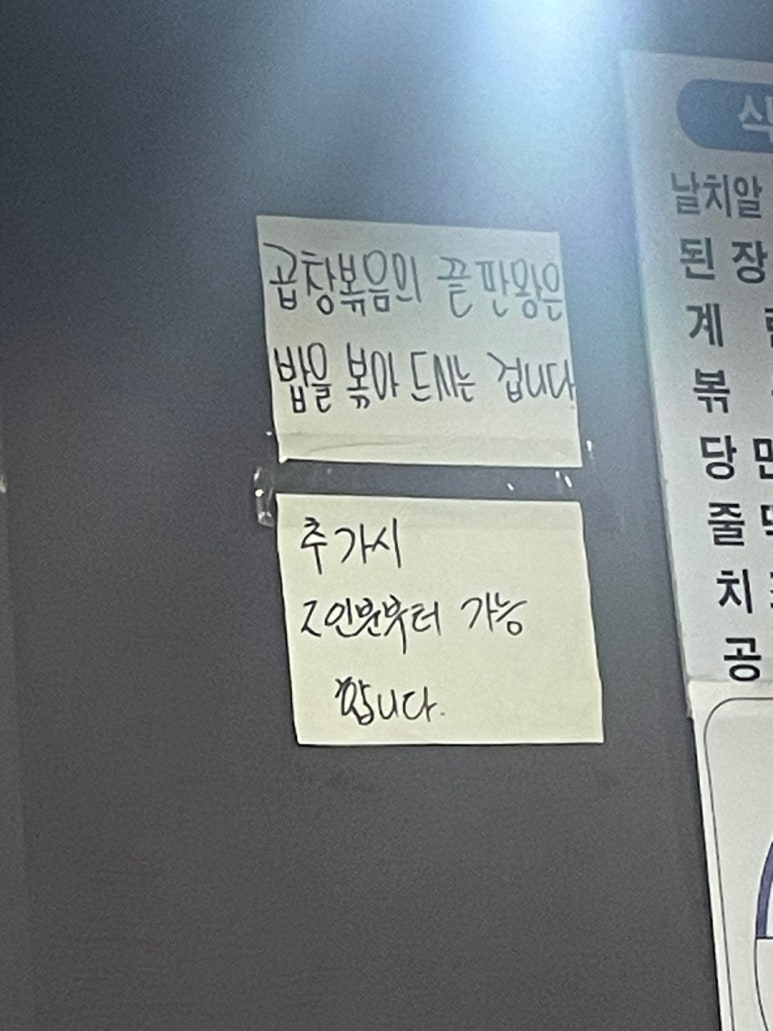 곱창볶음의 끝판왕은
밥을 볶아 드시는 겁니다
추가시
2인분부터 가능
합니다.
식
날치알
된 장
계
볶
당 면
줄
치
공